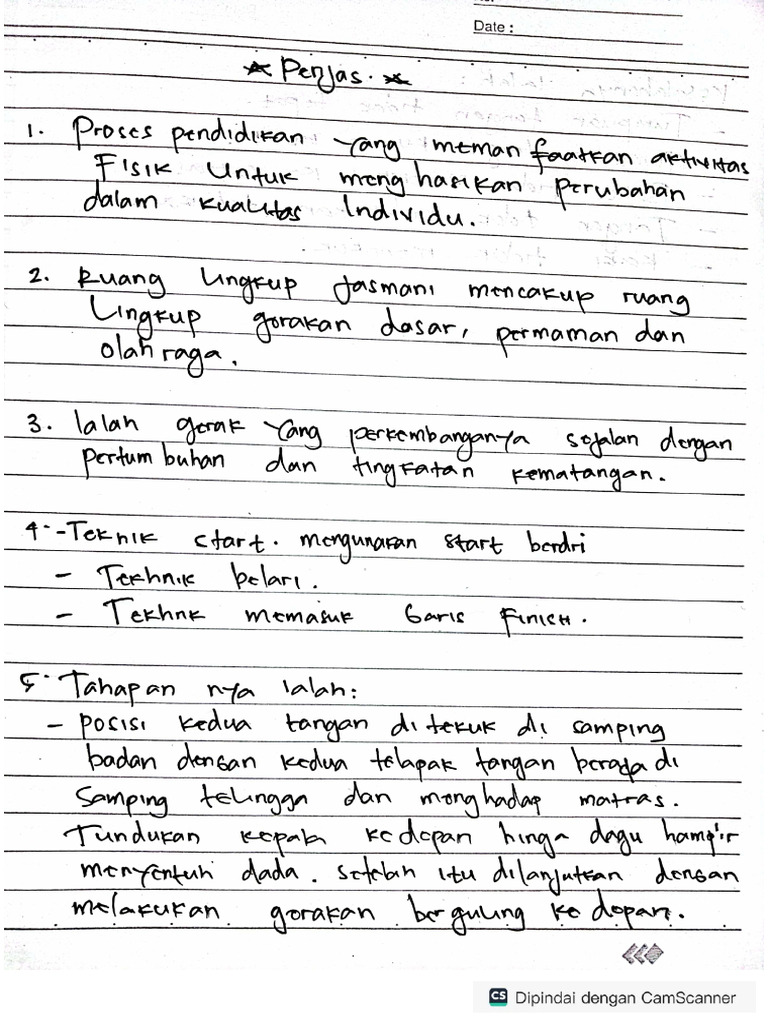 Date :
★ Penjas. ★
1. Proses pendidikan yang memanfaatkan aktivitas
Fisik Untuk menghasikan perubahan
dalam kualitas Individu.
2. Ruang Lingkup Jasmani mencakup ruang
Lingkup gerakan dasar, permaman dan
olahraga.
3. Ialah gerak yang perkembanganya sejalan dengan
pertumbuhan dan tingkatan kematangan.
4. - Teknik start. mengunakan start berdri
- Tekhnik belari.
- Tekhnk memasuk Garis Finish.
5. Tahapan nya ialah:
- posisi kedua tangan di tekuk di samping
badan dengan kedua telapak tangan berada di
Samping telingga dan menghadap matras.
Tundukan kepala kedepan hinga dagu hampir
menyentuh dada. setelah itu dilanjutkan dengan
melakukan gerakan berguling ke depan.
CS Dipindai dengan CamScanner